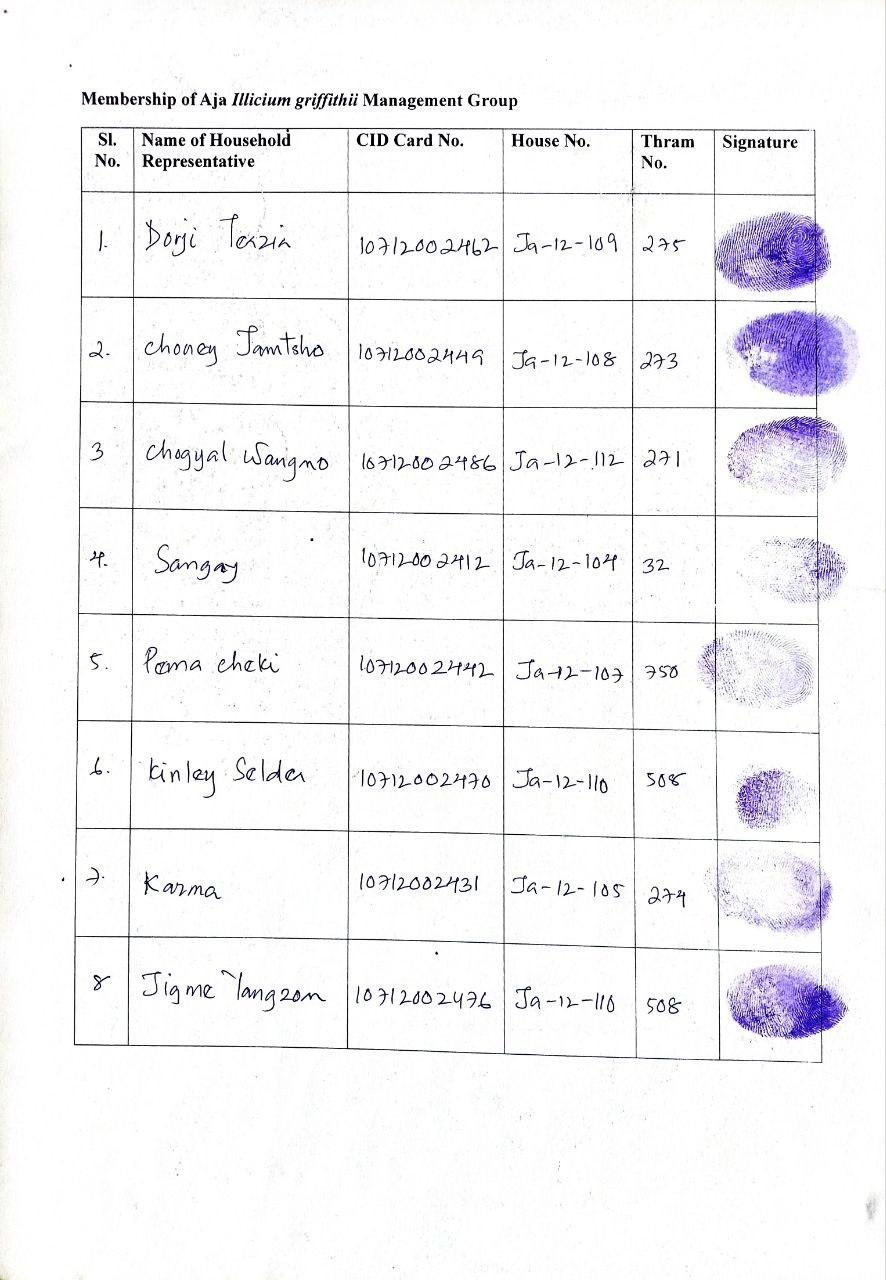 Membership of Aja Illicium griffithii Management Group
Sl. No. Name of Household Representative CID Card No. House No. Thram No. Signature
1. Dorji Tenzin 10712002462 Ja-12-109 275
2. Choney Jamtsho 10712002449 Ja-12-108 273
3 Chogyal Wangmo 10712002486 Ja-12-112 271
4. Sangay 10712002412 Ja-12-104 32
5. Pema cheki 10712002442 Ja-12-107 750
6. Kinley Selden 10712002470 Ja-12-110 508
7. Karma 10712002431 Ja-12-105 274
8 Jigme Yangzom 10712002476 Ja-12-110 508